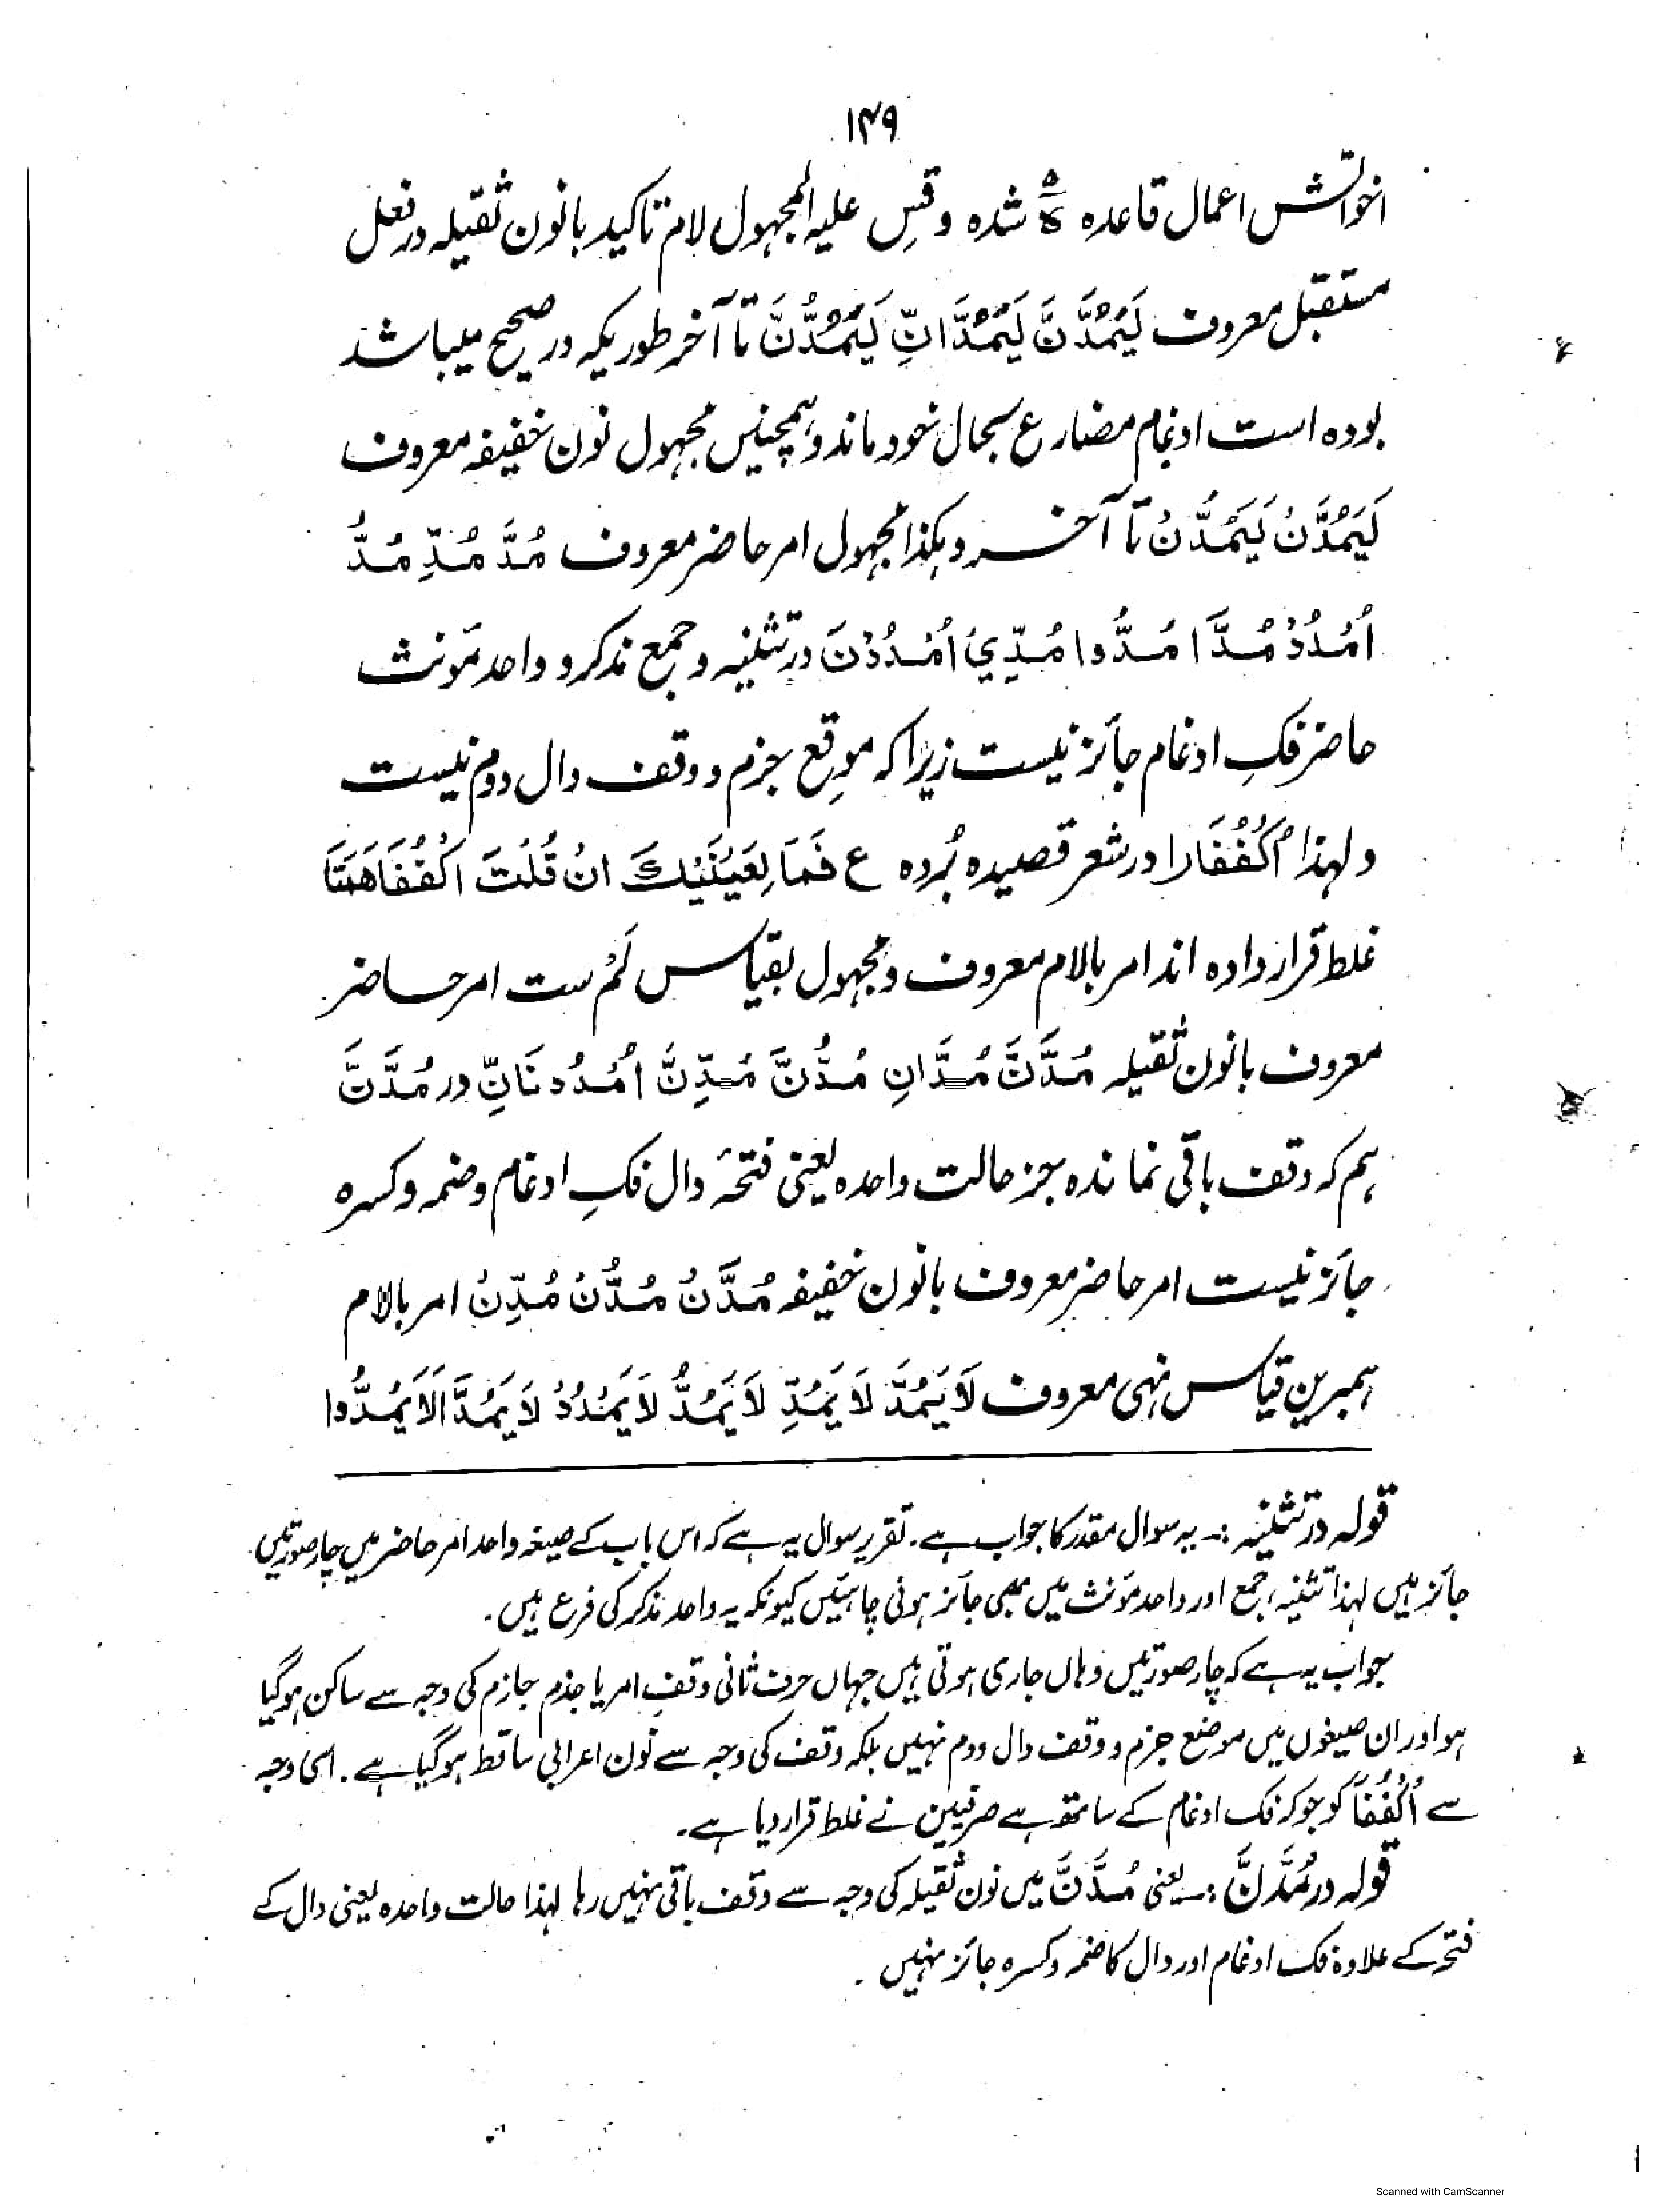 ۱۴۹
اخواتش اعمال قاعده شده وقِس علیه المجہول لام تاکید بانون ثقیلہ در فعل
مستقبل معروف لَیَمُدَّنَّ لَیَمُدَّانِّ لَیَمُدُّنَّ تا آخر طوریکہ در صحیح میباشد
بوده است ادغام مضارع بحال خود ماند وہمچنیں مجہول نون خفیفہ معروف
لَیَمُدَّنْ لَیَمُدُّنْ تا آخر وہکذا مجہول امر حاضر معروف مُدَّ مُدِّ مُدُّ
اُمْدُدْ مُدَّا مُدُّوا مُدِّیْ اُمْدُدْنَ در تثنیہ وجمع مذکر و واحد مؤنث
حاضر فکِ ادغام جائز نیست زیرا کہ موقِع جزم و وقف دال دوم نیست
ولہذا اُکْفُفَا را در شعر قصیدہ بُردہ ع فَمَا لِعَیْنَیْكَ اِنْ قُلْتَ اکْفُفَا هَمَتَا
غلط قرار داده اند امر بالام معروف و مجہول بقیاس لَمْ ست امر حاضر
معروف بانون ثقیلہ مُدَّنَّ مُدَّانِ مُدُّنَّ مُدِّنَّ اُمْدُدْنَانِّ در مُدَّنَّ
ہم کہ وقف باقی نماندہ بجز حالت واحدہ یعنی فتحۂ دال فکِ ادغام وضمہ وکسرہ
جائز نیست امر حاضر معروف بانون خفیفہ مُدَّنْ مُدُّنْ مُدِّنْ امر بالام
ہمبرین قیاس نہی معروف لَا یَمُدَّ لَا یَمُدِّ لَا یَمُدُّ لَا یَمْدُدْ لَا یَمُدَّا لَا یَمُدُّوا
قولہ در تثنیہ :۔ یہ سوال مقدر کا جواب ہے۔ تقریر سوال یہ ہے کہ اس باب کے صیغہ واحد امر حاضر میں چار صورتیں
جائز ہیں لہذا تثنیہ، جمع اور واحد مؤنث میں بھی جائز ہونی چاہئیں کیونکہ یہ واحد مذکر کی فرع ہیں۔
جواب یہ ہے کہ چار صورتیں وہاں جاری ہوتی ہیں جہاں حرف ثانی وقفِ امر یا جذم جازم کی وجہ سے ساکن ہوگیا
ہو اور ان صیغوں میں موضع جزم و وقف دال دوم نہیں بلکہ وقف کی وجہ سے نون اعرابی ساقط ہوگیا ہے۔ اسی وجہ
سے اُکْفُفَا کو جو کہ فک ادغام کے ساتھ ہے صرفیین نے غلط قرار دیا ہے۔
قولہ در مُدَّنَّ :۔ یعنی مُدَّنَّ میں نون ثقیلہ کی وجہ سے وقف باقی نہیں رہا لہذا حالت واحدہ یعنی دال کے
فتحہ کے علاوہ فک ادغام اور دال کا ضمہ وکسرہ جائز نہیں۔
Scanned with CamScanner